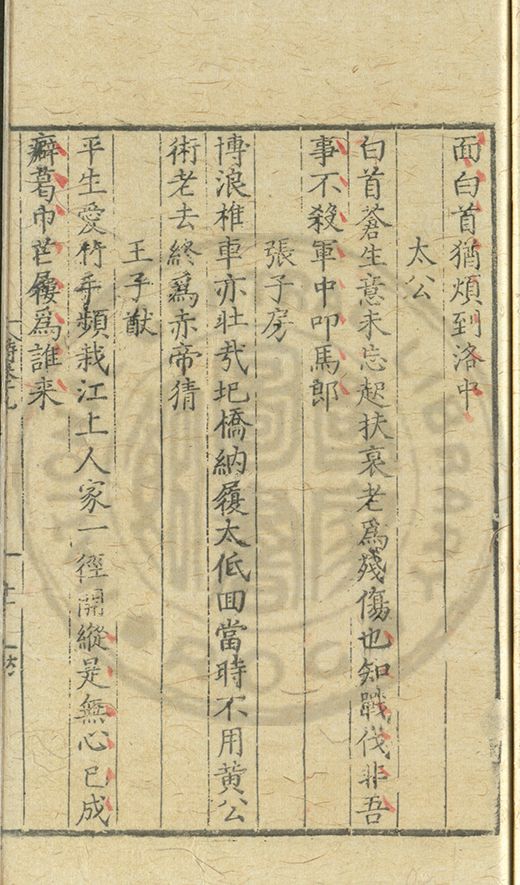 面白首猶煩到洛中
太公
白首蒼生意未忘起扶衰老爲殘傷也知戰伐非吾
事不殺軍中叩馬郎
張子房
博浪椎車亦壯㦲圯橋納履太低回當時不用黃公
術老去終爲赤帝猜
王子猷
平生愛竹手頻栽江上人家一徑開縱是無心已成
癖葛巾芒屨爲誰来